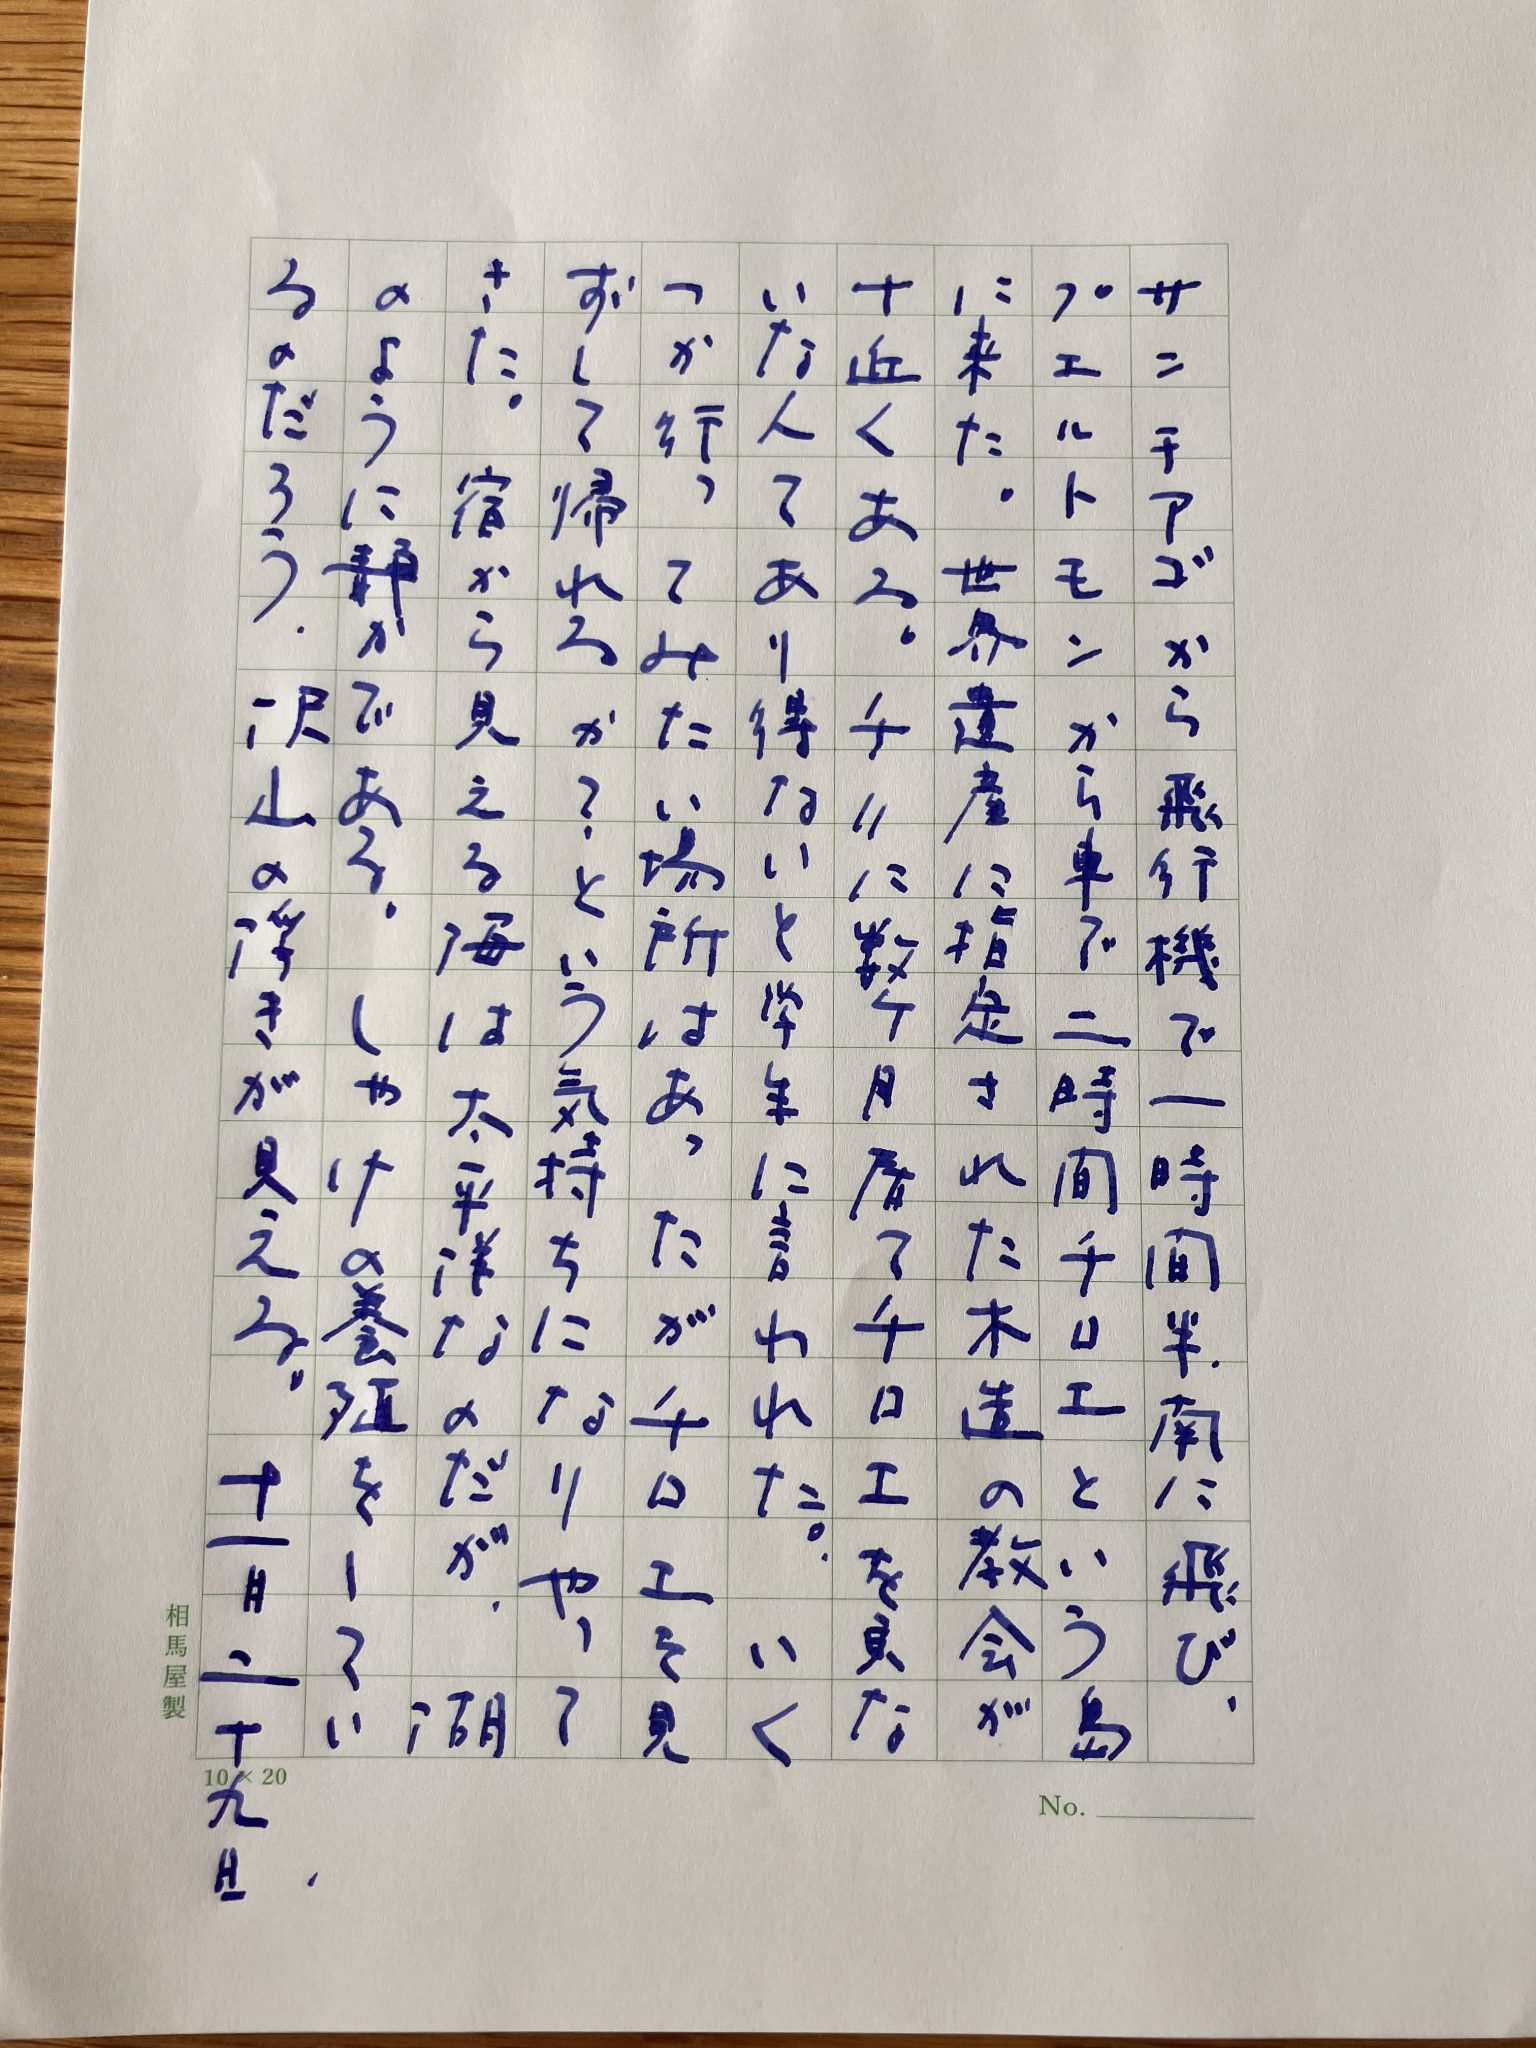 サンチアゴから飛行機で一時間半.南に飛び、
プエルトモンから車で二時間チロエという島
に来た。世界遺産に指定された木造の教会が
十近くある。チリに数ケ月居てチロエを見な
いな人てあり得ないと学年に言われた。いく
つか行ってみたい場所はあったがチロエそ見
ずして帰れるか?、という気持ちになりやって
きた。宿から見える海は太平洋なのだが、湖
のように静かである。しゃけの養殖をしてい
るのだろう、沢山の浮きが見える。十一月二十九日、
相馬屋製
10×20
No.